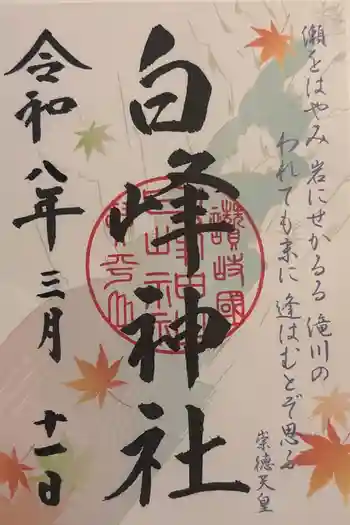 瀬をはやみ 岩にせかるる 滝川の
われても末に 逢はむとぞ思ふ
崇徳天皇
白峰神社
讃岐國
令和八年 三月 十一日